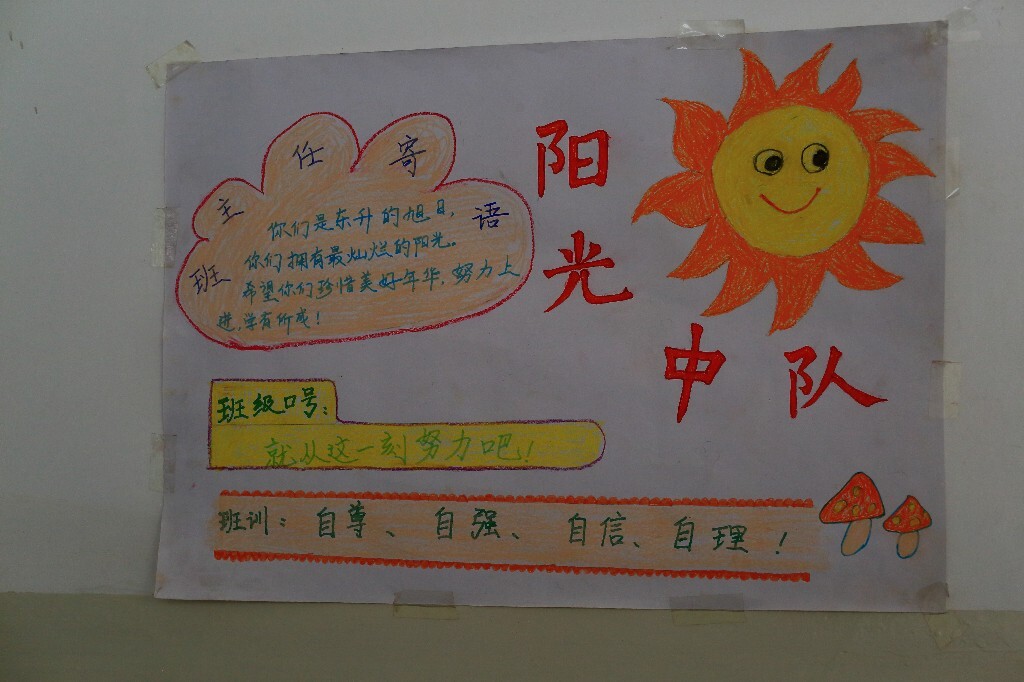 班主任寄语
你们是东升的旭日，
你们拥有最灿烂的阳光。
希望你们珍惜美好年华，努力上
进，学有所成！
阳光
中队
班级口号：
就从这一刻努力吧！
班训：自尊、自强、自信、自理！